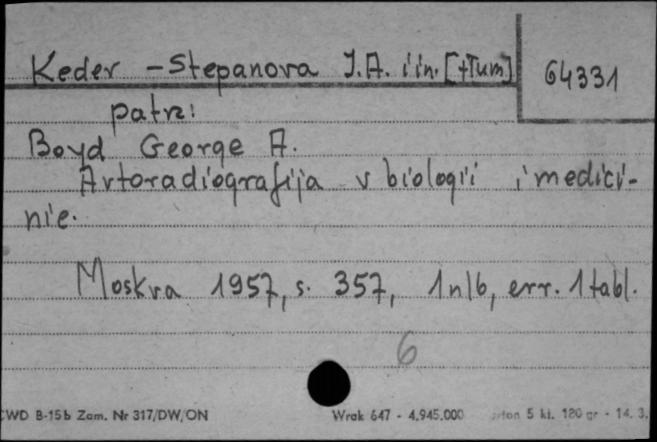 Keder - Stepanova I.A. i in. [tłum] 64331
patrz:
Boyd George A.
Avtoradiografija v biologii i medici-
nie.
Moskva 1957, s. 357, 1 nlb, err. 1 tabl.
6
CWD B-15b Zam. Nr 317/DW/ON Wrak 647 - 4.945.000 5 kl. 120 gr - 14. 3.